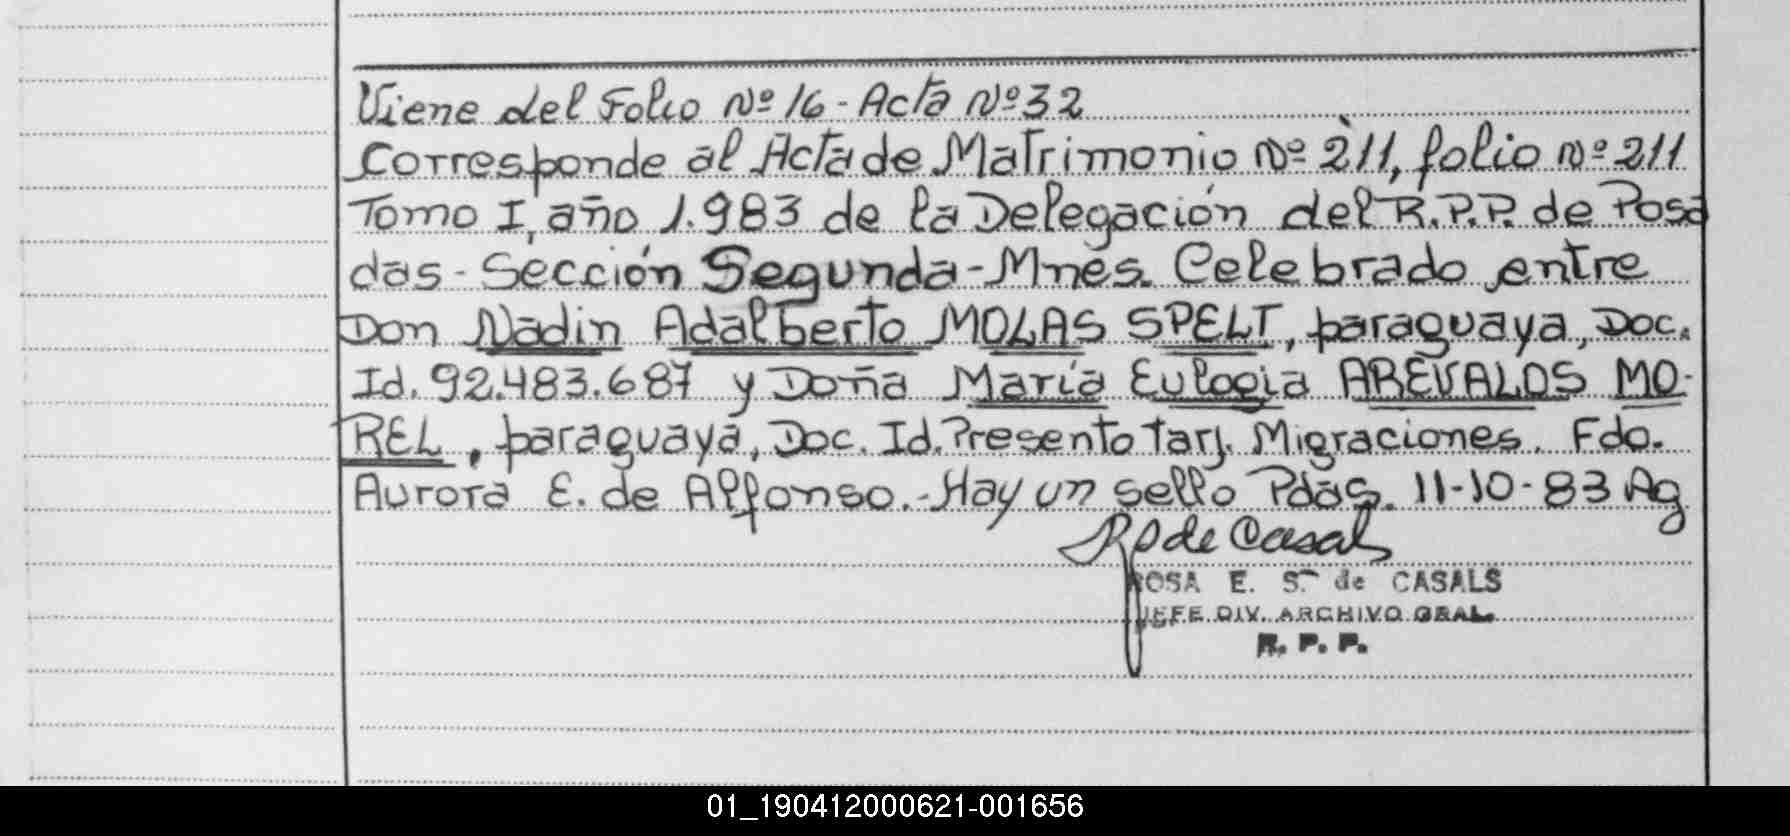 Viene del Folio Nº 16 - Acta Nº 32
Corresponde al Acta de Matrimonio Nº 211, folio Nº 211
Tomo I, año 1.983 de la Delegación del R.P.P. de Posa
das - Sección Segunda - Mnes. Celebrado entre
Don Nadin Adalberto MOLAS SPELT, paraguaya, Doc.
Id. 92.483.687 y Doña María Eulogia AREVALOS MO-
REL, paraguaya, Doc. Id. Presento Tarj. Migraciones. Fdo.
Aurora E. de Alfonso. - Hay un sello Pdas. 11-10-83 Ag
de Casals
ROSA E. S. de CASALS
JEFE DIV. ARCHIVO GRAL.
R. P. P.
01_190412000621-001656